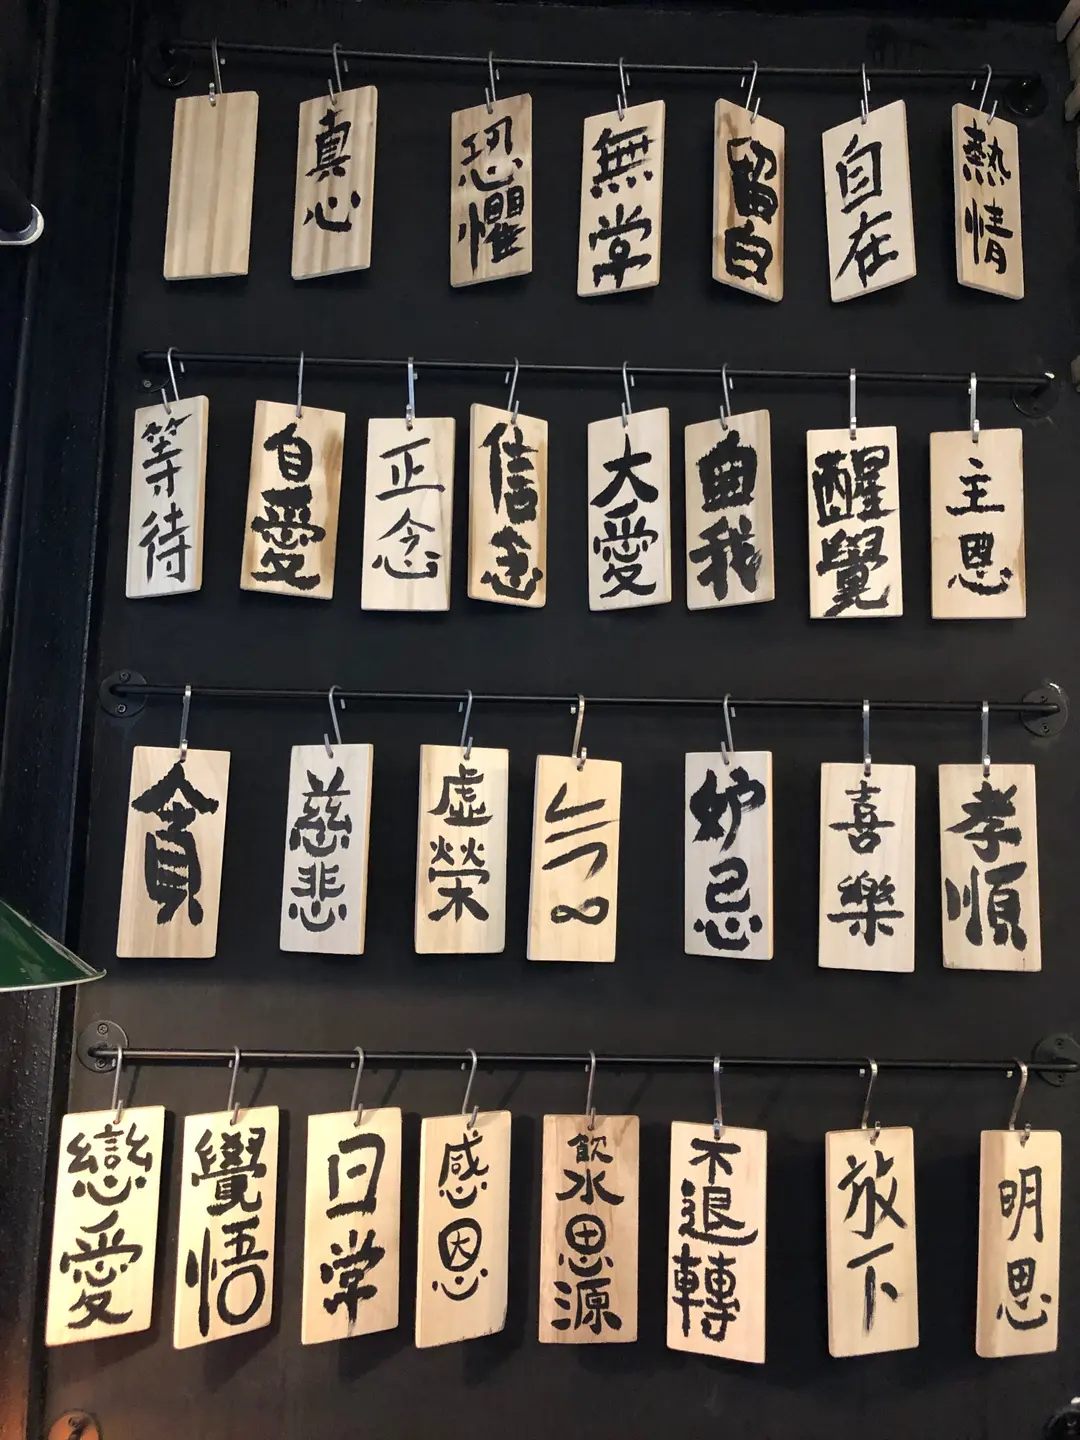 真心
恐懼
無常
留白
自在
熱情
等待
自愛
正念
信念
大愛
自我
醒覺
主恩
貪
慈悲
虛榮
妒忌
喜樂
孝順
戀愛
覺悟
日常
感恩
飲水思源
不退轉
放下
明思